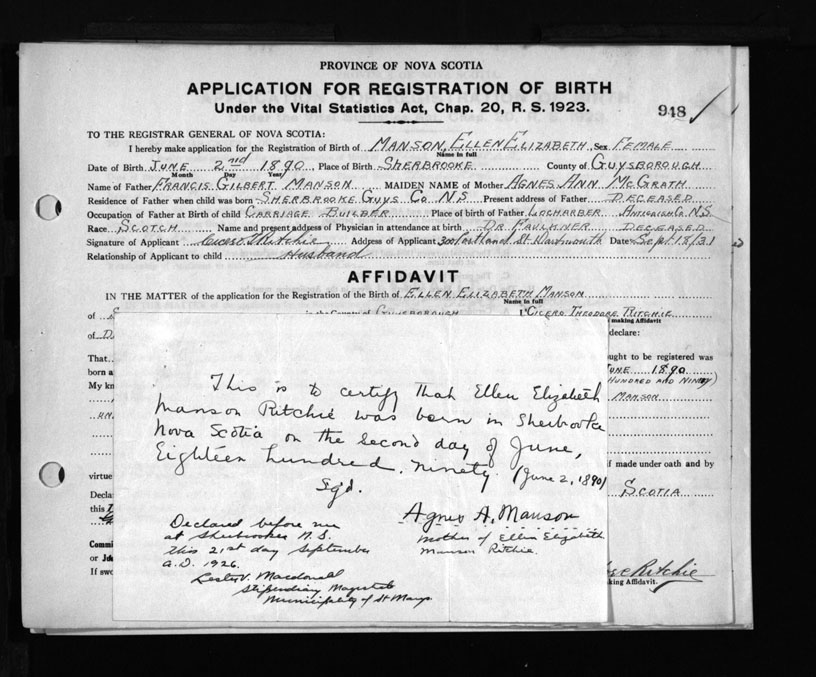 PROVINCE OF NOVA SCOTIA
APPLICATION FOR REGISTRATION OF BIRTH
Under the Vital Statistics Act, Chap. 20, R. S. 1923.
948
TO THE REGISTRAR GENERAL OF NOVA SCOTIA:
I hereby make application for the Registration of Birth of MANSON, ELLEN ELIZABETH, Sex FEMALE
Name in full
Date of Birth JUNE 2nd 1890 Place of Birth SHERBROOKE County of GUYSBOROUGH
Month Day Year
Name of Father FRANCIS GILBERT MANSON MAIDEN NAME of Mother AGNES ANN McGRATH
Residence of Father when child was born SHERBROOKE GUYS Co N.S Present address of Father DECEASED
Occupation of Father at Birth of child CARRIAGE BUILDER Place of birth of Father LOCHARBER ANTIGONISH Co N.S.
Race SCOTCH Name and present address of Physician in attendance at birth DR FAULKNER DECEASED
Signature of Applicant Cicero T Ritchie Address of Applicant 300 Portland St Dartmouth Date Sept 18/31
Relationship of Applicant to child Husband
AFFIDAVIT
IN THE MATTER of the application for the Registration of the Birth of ELLEN ELIZABETH MANSON
Name in full
of in the County of GUYSBOROUGH I, CICERO THEODORE RITCHIE
making Affidavit
of D declare:
That ought to be registered was
born a JUNE 1890
My kn HUNDRED AND NINETY)
MANSON
if made under oath and by
virtue SCOTIA
Decla
this
Commi
or Ju
If swo
Ritchie
king Affidavit.
This is to certify that Ellen Elizabeth
Manson Ritchie was born in Sherbrooke
Nova Scotia on the second day of June,
Eighteen hundred, ninety. (June 2, 1890)
Sgd.
Agnes A. Manson
mother of Ellen Elizabeth
Manson Ritchie.
Declared before me
at Sherbrooke N.S.
this 21st day September
A.D. 1926.
Lester V. Macdonald
Stipendiary Magistrate
Municipality of St Marys